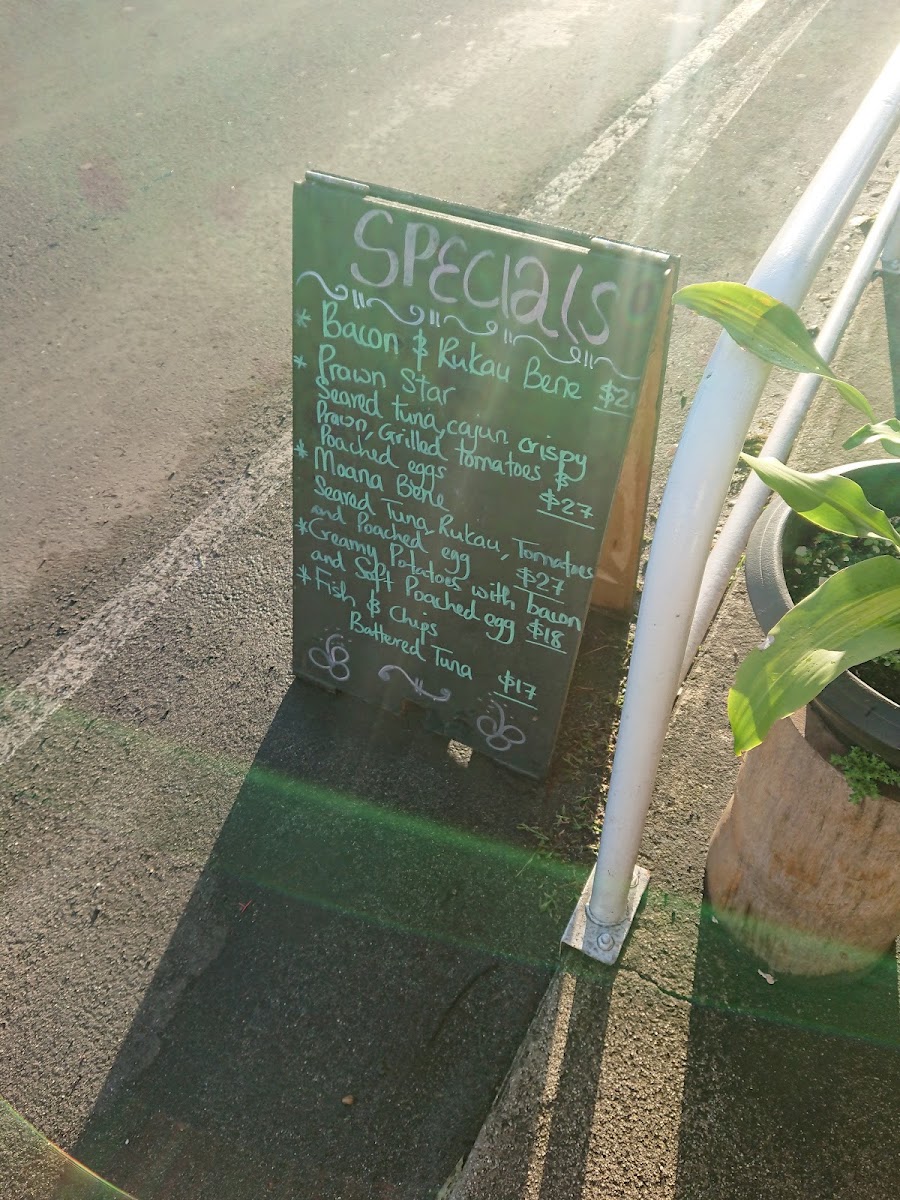 SPECIALS
* Bacon & Rukau Bene $21
* Prawn Star
Seared tuna, cajun crispy
Prawn, Grilled tomatoes &
Poached eggs $27
* Moana Bene
Seared Tuna, Rukau, Tomatoes
and Poached egg $27
* Creamy Potatoes with bacon
and Soft Poached egg $18
* Fish & Chips
Battered Tuna $17